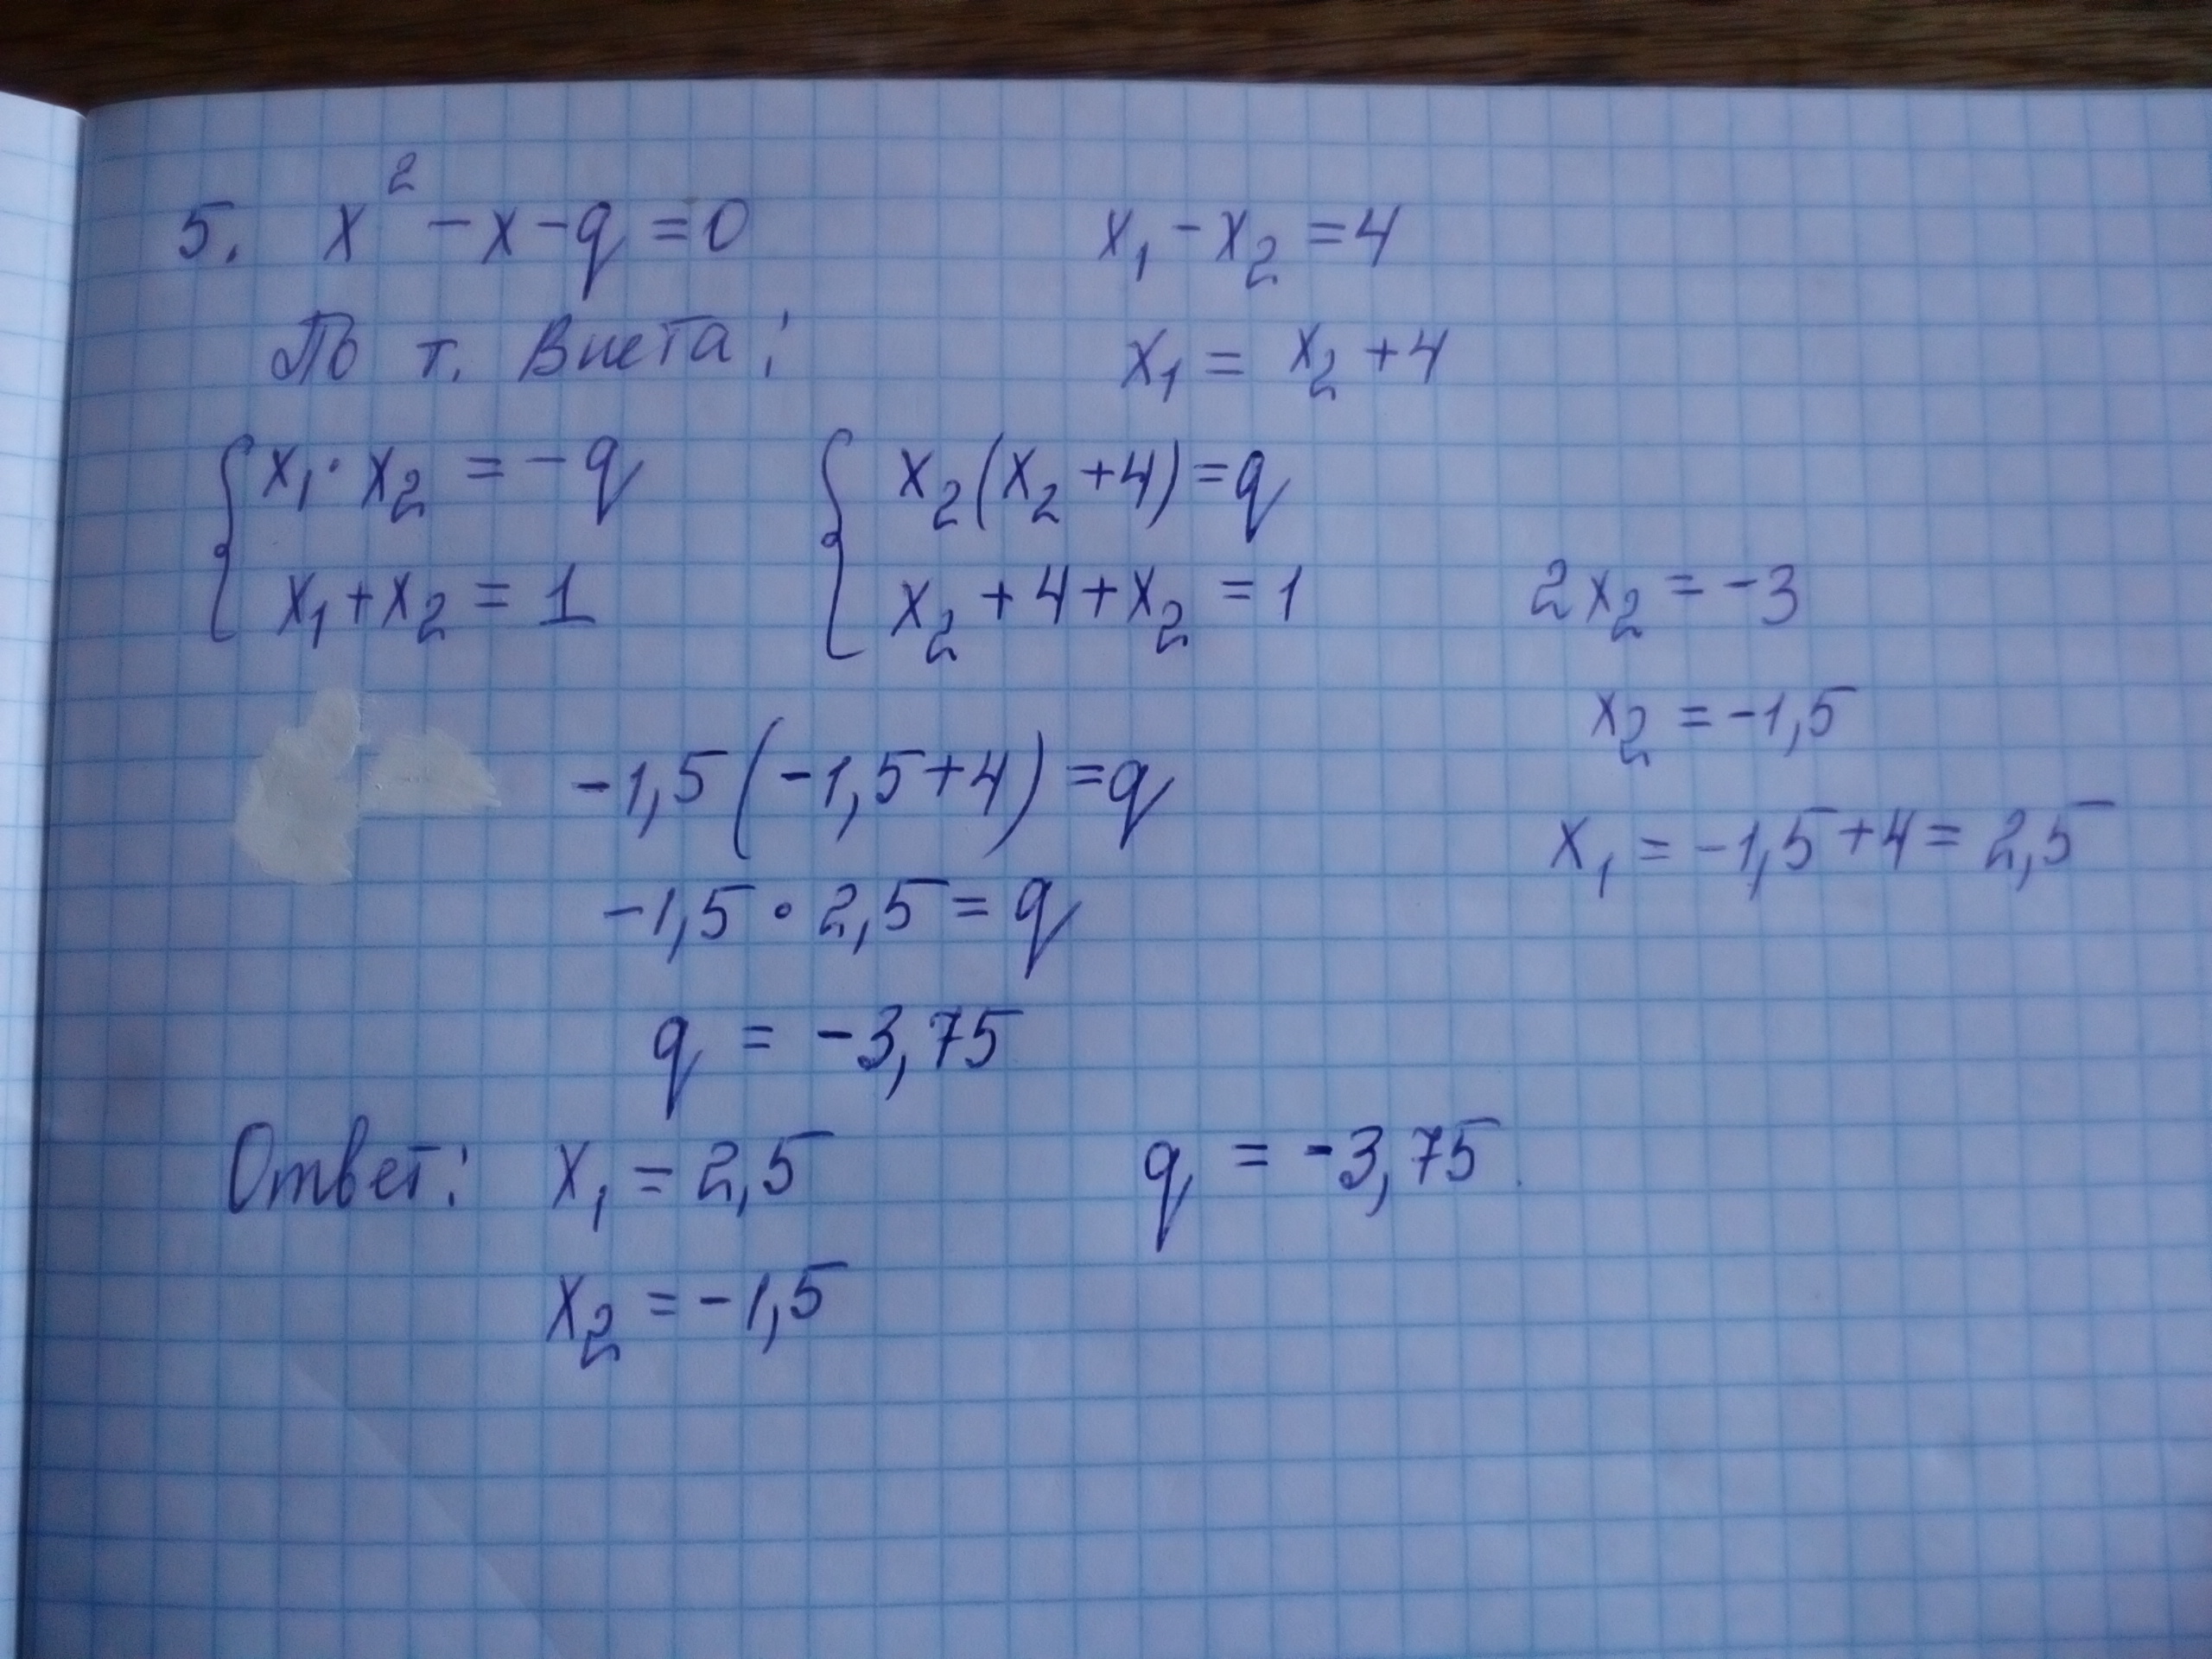 5. x² - x - q = 0
x₁ - x₂ = 4
По т. Виета:
x₁ = x₂ + 4
x₁ · x₂ = -q
x₂(x₂ + 4) = q
x₁ + x₂ = 1
x₂ + 4 + x₂ = 1
2x₂ = -3
x₂ = -1,5
-1,5(-1,5 + 4) = q
x₁ = -1,5 + 4 = 2,5
-1,5 · 2,5 = q
q = -3,75
Ответ: x₁ = 2,5
q = -3,75.
x₂ = -1,5